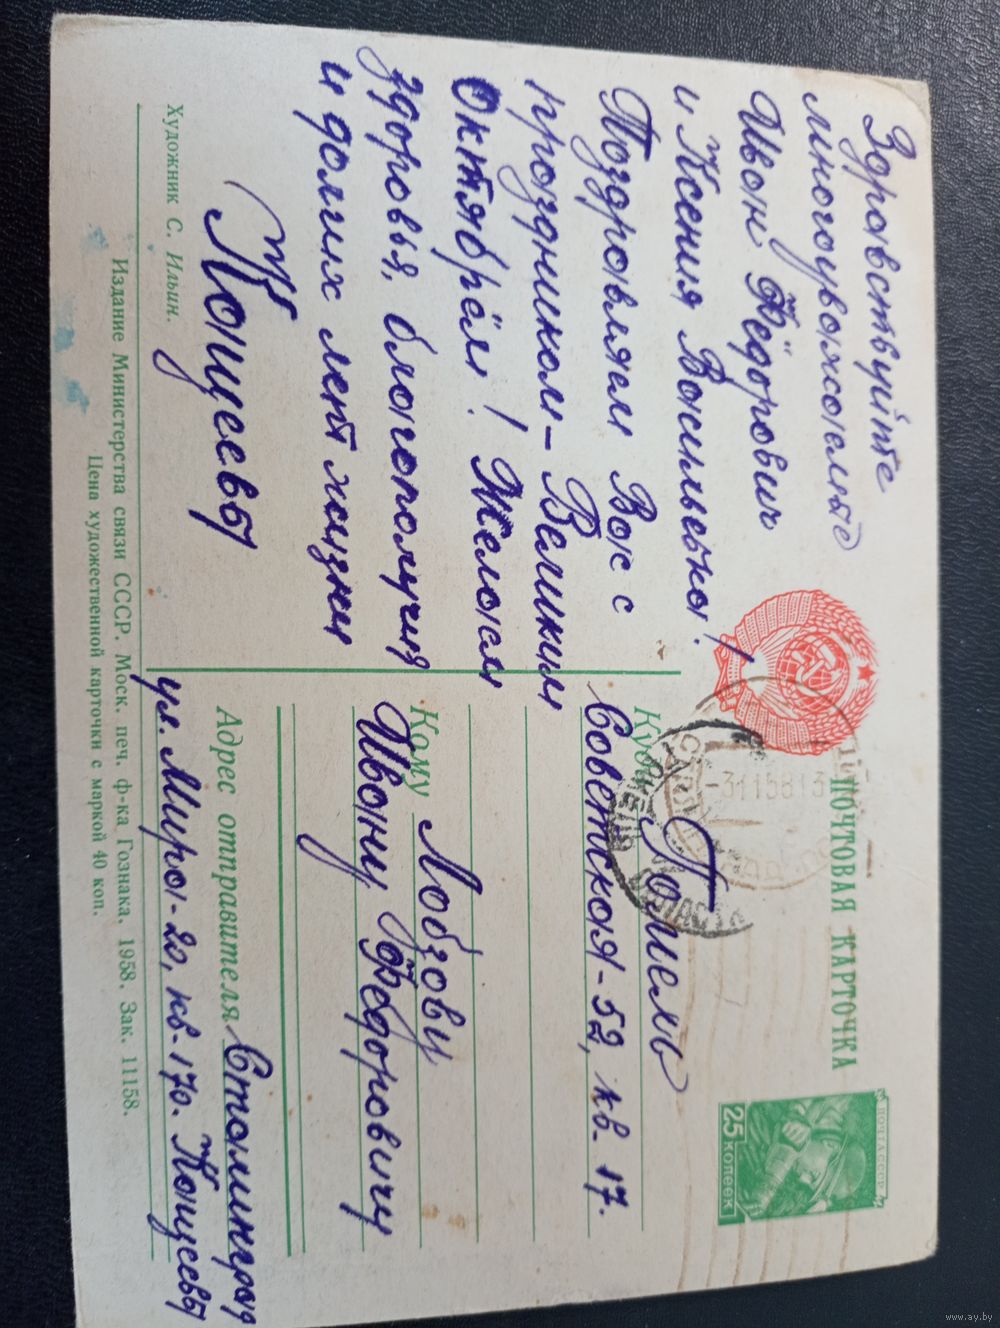 Здравствуйте
многоуважаемые
Иван Фёдорович
и Ксения Васильевна!
Поздравляем Вас с
праздником - Великим
Октябрём! Желаем
здоровья, благополучия
и долгих лет жизни
Кащеевы
Художник С. Ильин.
ПОЧТОВАЯ КАРТОЧКА
ПОЧТА СССР
25 КОПЕЕК
Куда Гомель
Советская-52, кв. 17.
Кому Лобзову
Ивану Федоровичу
Адрес отправителя Сталинград
ул. Мира-20, кв. 170. Кащеевы
Издание Министерства связи СССР. Моск. печ. ф-ка Гознака. 1958. Зак. 11158.
Цена художественной карточки с маркой 40 коп.
www.ay.by